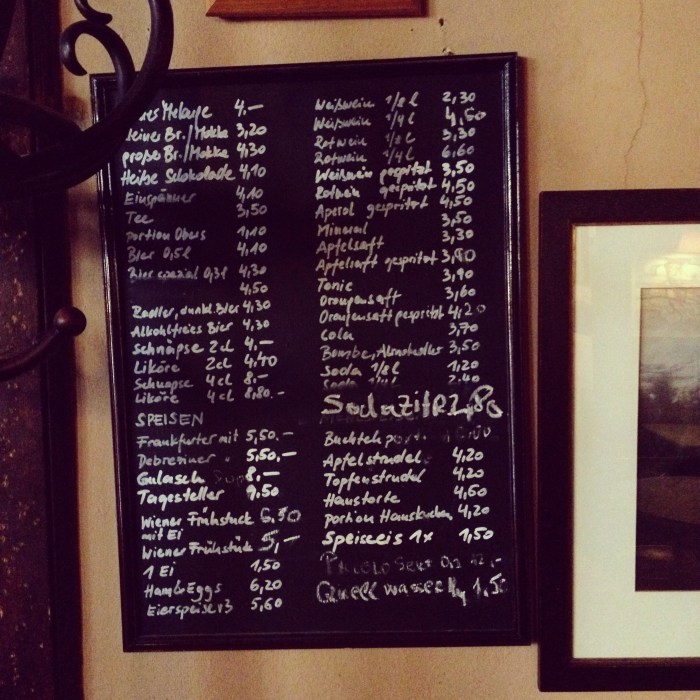 Melange 4,–
kleiner Br./Mokka 3,20
große Br./Mokka 4,30
Heiße Schokolade 4,10
Einspänner 4,10
Tee 3,50
Portion Obers 1,10
Bier 0,5l 4,10
Bier spezial 0,3l 4,30
4,50
Radler, dunkl. Bier 4,30
Alkoholfreies Bier 4,30
Schnäpse 2cl 4,–
Liköre 2cl 4,40
Schnapse 4cl 8,–
Liköre 4cl 8,80.–
SPEISEN
Frankfurter mit 5,50.–
Debreziner " 5,50.–
Gulasch 8,–
Tagesteller 9,50
Wiener Frühstück 6,50
mit Ei
Wiener Frühstück 5,–
1 Ei 1,50
Ham&Eggs 6,20
Eierspeise v3 5,60
Weißwein 1/8l 2,30
Weißwein 1/4l 4,60
Rotwein 1/8l 3,30
Rotwein 1/4l 6,60
Weißwein gespritzt 3,50
Rotwein gespritzt 4,50
Aperol gespritzt 4,50
Mineral 3,50
Apfelsaft 3,30
Apfelsaft gespritzt 3,90
Tonic 3,90
Orangensaft 3,60
Orangensaft gespritzt 4,20
Cola 3,70
Bombe, Almdudler 3,50
Soda 1/8l 1,20
Soda 1/4l 2,40
Soda Zitr 2,80
Buchteln
Apfelstrudel 4,20
Topfenstrudel 4,20
Haustorte 4,60
Portion Hauskuchen 4,20
Speiseeis 1x 1,50
Quellwasser 1,50